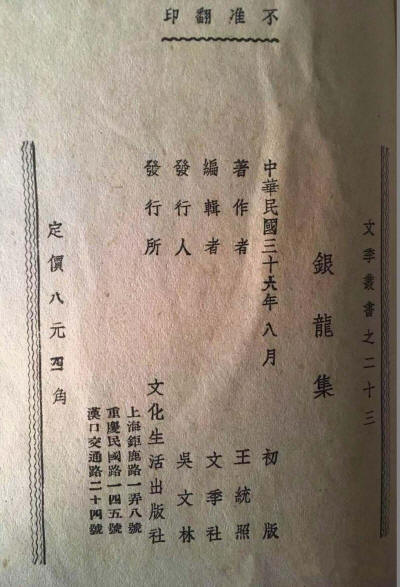 不准翻印
文季叢書之二十三
銀龍集
中華民國三十六年八月初版
著作者 王統照
編輯者 文季社
發行人 吳文林
發行所 文化生活出版社
上海鉅鹿路一弄八號
重慶民國路一四五號
漢口交通路二十四號
定價八元四角